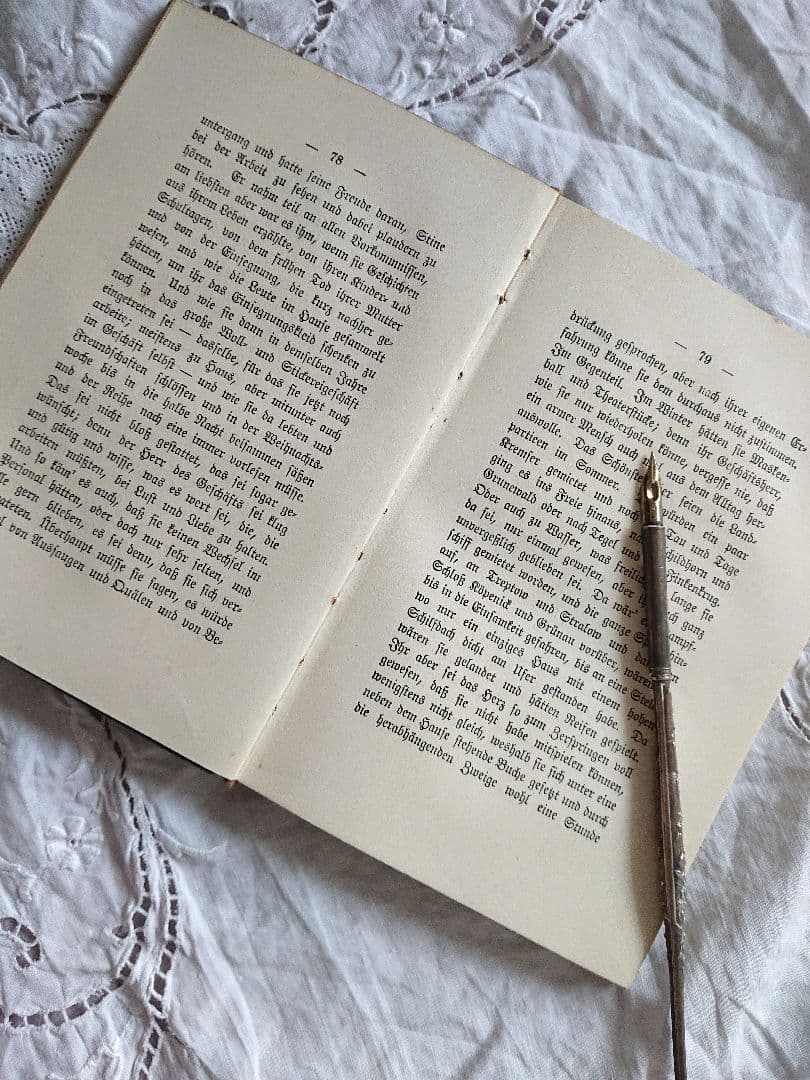 — 78 —
untergang und hatte seine Freude daran, Stine
bei der Arbeit zu sehen und dabei plaudern zu
hören. Er nahm teil an allen Vorkommnissen,
am liebsten aber war es ihm, wenn sie Geschichten
aus ihrem Leben erzählte, von ihren Kinder- und
Schultagen, von dem frühen Tod ihrer Mutter
und von der Einsegnung, die kurz nachher ge-
wesen, und wie die Leute im Hause gesammelt
hätten, um ihr das Einsegnungskleid schenken zu
können. Und wie sie dann in demselben Jahre
noch in das große Woll- und Stickereigeschäft
eingetreten sei — dasselbe, für das sie jetzt noch
arbeite; meistens zu Haus, aber mitunter auch
im Geschäft selbst — und wie sie da lebten und
Freundschaften schlössen und in der Weihnachts-
woche bis in die halbe Nacht beisammen säßen
und der Reihe nach eine immer vorlesen müsse.
Das sei nicht bloß gestattet, das sei sogar ge-
wünscht; denn der Herr des Geschäfts sei klug
und gütig und wisse, was es wert sei, die, die
arbeiten müßten, bei Lust und Liebe zu halten.
Und so käm' es auch, daß sie keinen Wechsel im
Personal hätten, oder doch nur sehr selten, und
gern blieben, es sei denn, daß sie sich ver-
Überhaupt müsse sie sagen, es würde
von Aussaugen und Quälen und von Be-
— 79 —
drückung gesprochen, aber nach ihrer eigenen Er-
fahrung könne sie dem durchaus nicht zustimmen.
Im Gegenteil. Im Winter hätten sie Masken-
ball und Theaterstücke; denn ihr Geschäftsherr,
wie sie nur wiederholen könne, vergesse nie, daß
ein armer Mensch auch aus dem Alltag her-
auswolle. Das Schönste seien die Land-
partieen im Sommer. würden ein paar
Kremser gemietet und noch Tau und Tage
ging es ins Freie hinaus, Schildhorn und
Grunewald oder nach Tegel und Finkenkrug.
Oder auch zu Wasser, was lange sie
da sei, nur einmal gewesen, aber ganz
unvergeßlich geblieben sei. Da wär' ein Dampf-
schiff gemietet worden, und die ganze hin-
auf, an Treptow und Stralow und
Schloß Köpenick und Grünau vorüber, wären
bis in die Einsamkeit gefahren, bis an eine
wo nur ein einziges Haus mit einem hohen
Schilfdach dicht am Ufer gestanden habe. Da
wären sie gelandet und hätten Reifen gespielt.
Ihr aber sei das Herz so zum Zerspringen voll
gewesen, daß sie nicht habe mitspielen können,
wenigstens nicht gleich, weshalb sie sich unter eine
neben dem Hause stehende Buche gesetzt und durch
die herabhängenden Zweige wohl eine Stunde